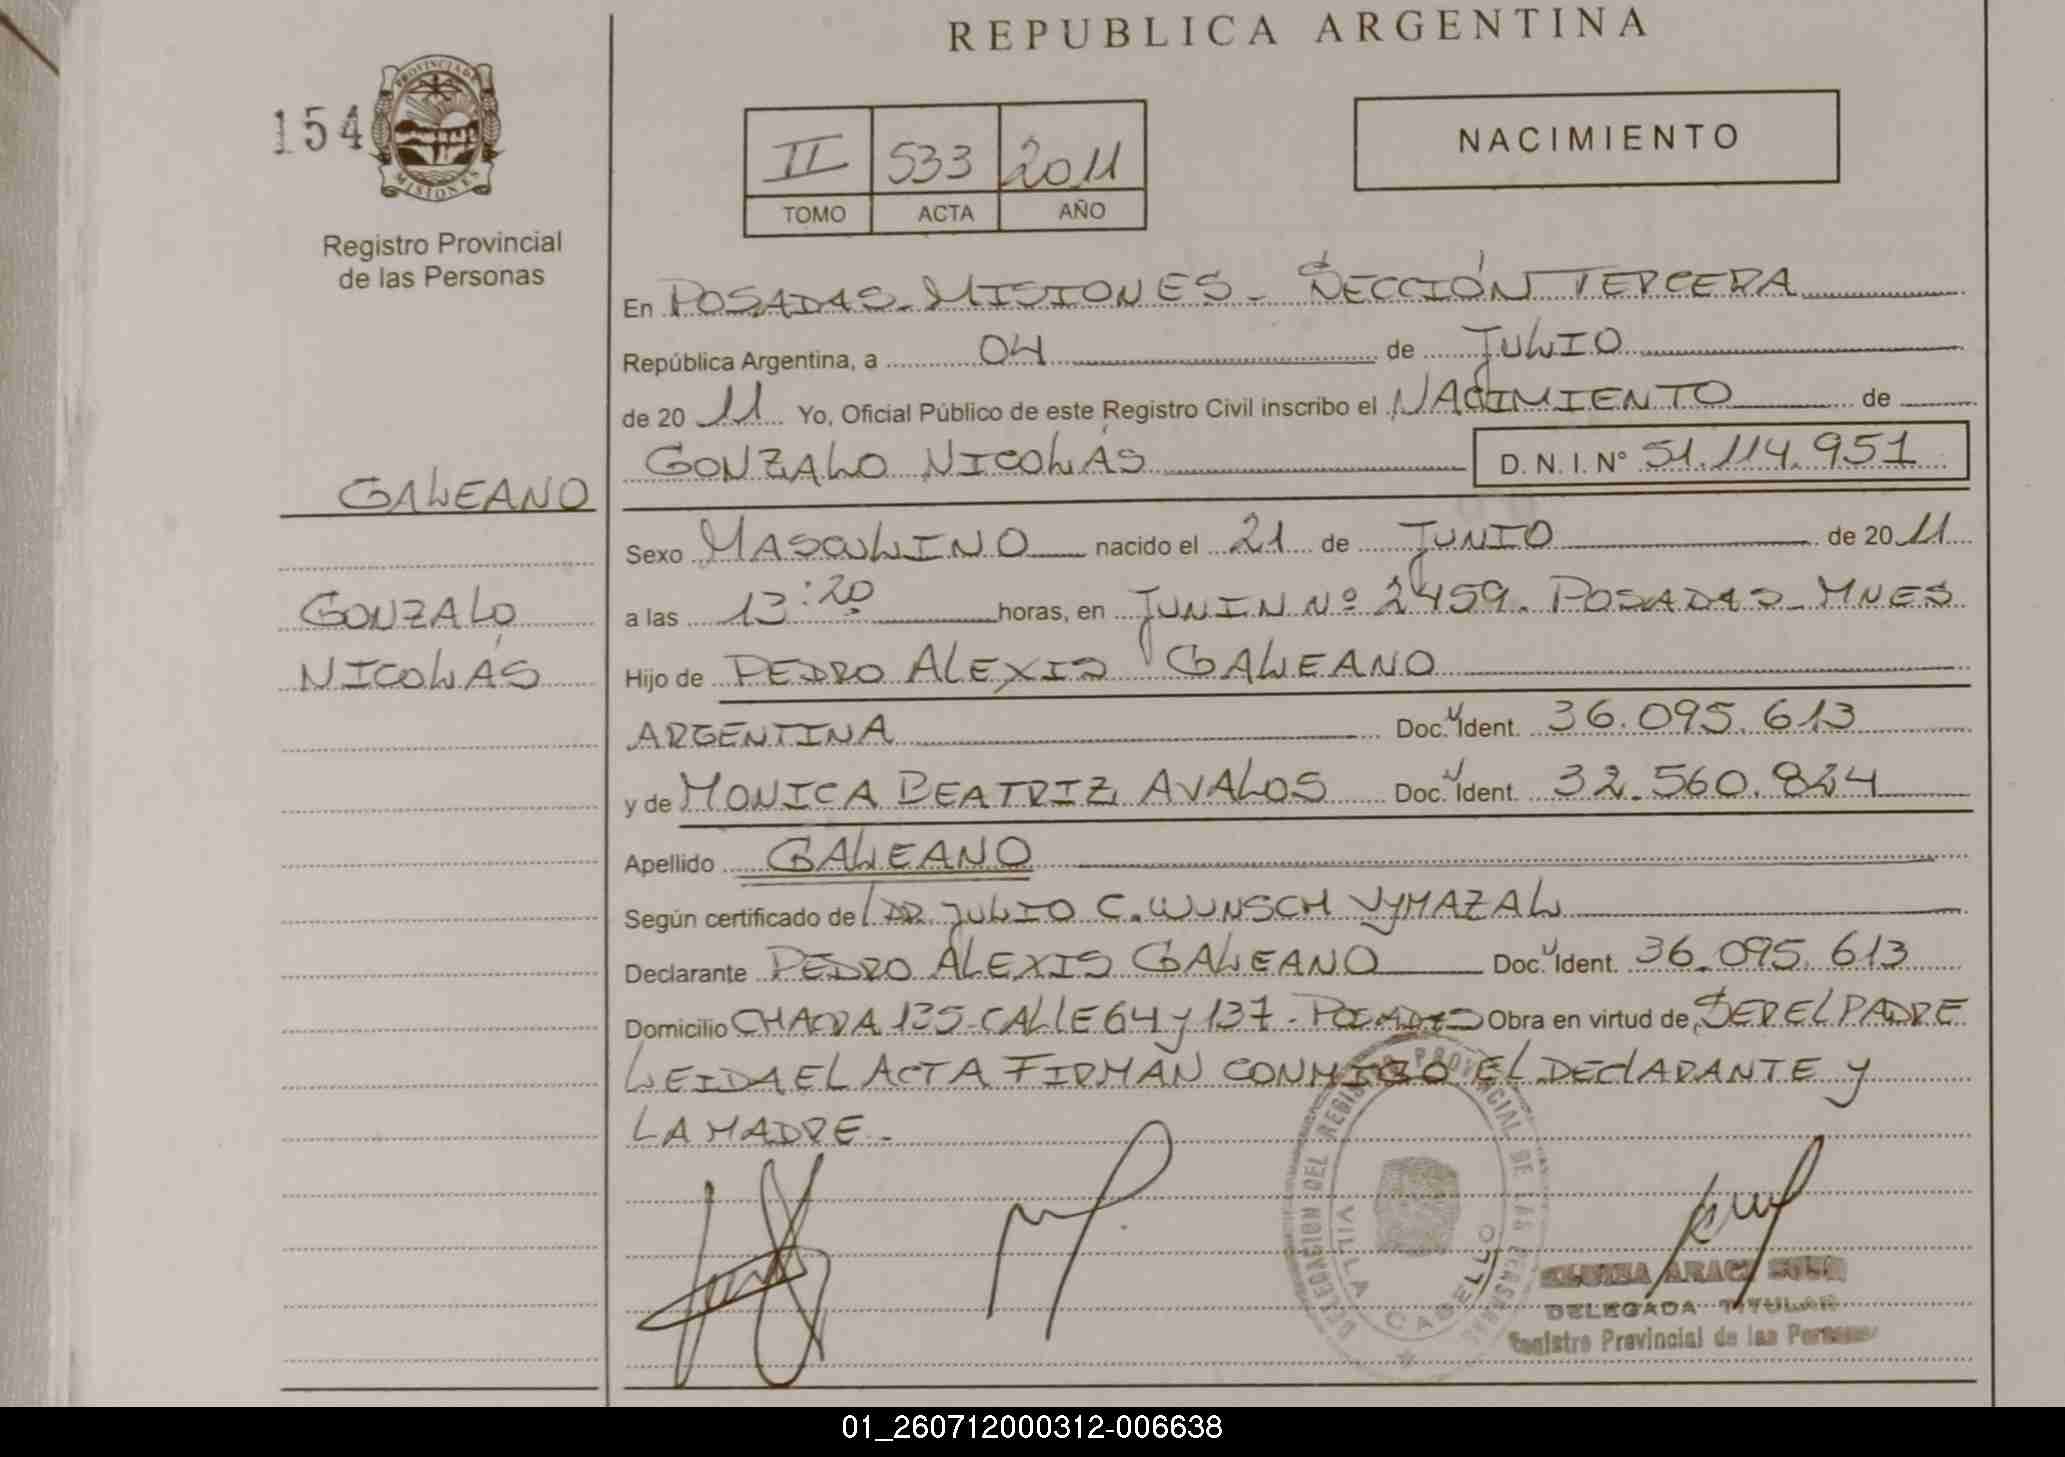 REPUBLICA ARGENTINA
154
PROVINCIA DE
MISIONES
Registro Provincial
de las Personas
II 533 2011
TOMO ACTA AÑO
NACIMIENTO
En POSADAS-MISIONES- SECCIÓN TERCERA
República Argentina, a 04 de JULIO
de 20 11 Yo, Oficial Público de este Registro Civil inscribo el NACIMIENTO de
GONZALO NICOLÁS D. N. I. Nº 51.114.951
GALEANO
GONZALO
NICOLÁS
Sexo MASCULINO nacido el 21 de JUNIO de 20 11
a las 13:20 horas, en JUNIN Nº 2459. POSADAS-MNES
Hijo de PEDRO ALEXIS GALEANO
ARGENTINA Doc. Ident. 36.095.613
y de MONICA BEATRIZ AVALOS Doc. Ident. 32.560.824
Apellido GALEANO
Según certificado de DR. JULIO C. WUNSCH VYMAZAL
Declarante PEDRO ALEXIS GALEANO Doc. Ident. 36.095.613
Domicilio CHACRA 135-CALLE 64 y 137-POSADAS Obra en virtud de SER EL PADRE
LEIDA EL ACTA FIRMAN CONMIGO EL DECLARANTE y
LA MADRE-
DELEGACION DEL REGISTRO PROVINCIAL DE LAS PERSONAS
VILLA CABELLO
DELEGADA TITULAR
Registro Provincial de las Personas
01_260712000312-006638